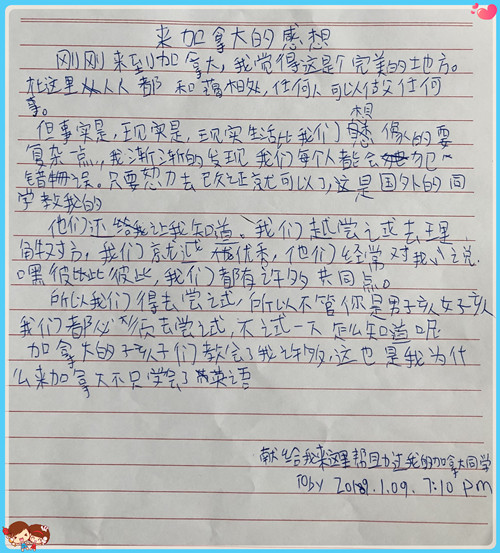 来加拿大的感想
刚刚来到加拿大，我觉得这是个完美的地方。
在这里人人都和蔼相处，任何人可以做任何
事。
但事实是，现实是，现实生活比我们想像的要
复杂一点，我渐渐的发现我们每个人都会犯
错误。只要努力去改正就可以了，这是国外的同
学教我的
他们还给我让我知道、我们越尝试去理
解对方，我们就越优秀，他们经常对我说
嘿彼此彼此，我们都有许多共同点。
所以我们得去尝试，所以不管你是男孩女孩
我们都必须去尝试，不试一下怎么知道呢
加拿大的孩子们教会了我许多，这也是我为什
么来加拿大不只学会了英语
献给我来这里帮助过我的加拿大同学
Toby 2018.1.09. 7:10 pm